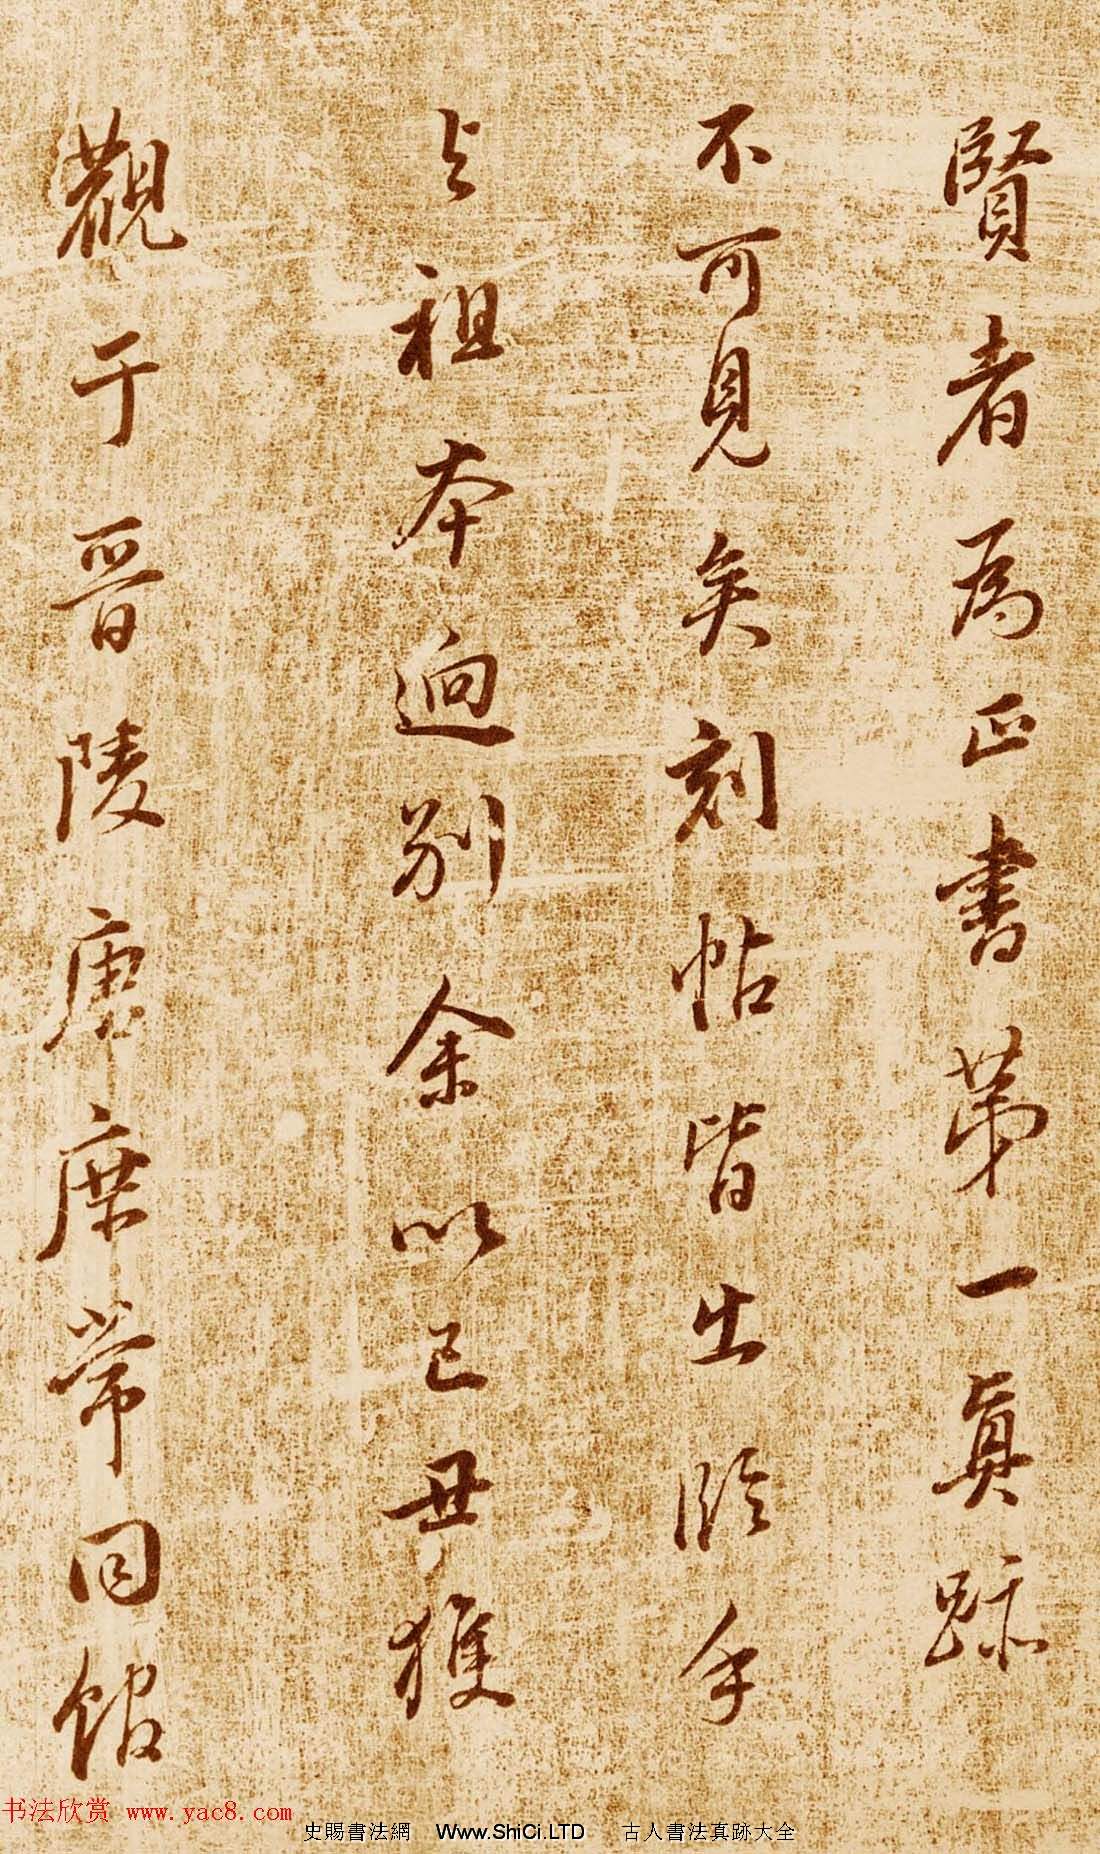 賢者為正書第一真跡
不可見矣刻帖皆出臨手
与祖本迥别余以己丑獲
觀于晉陵唐庶常同館
书法欣赏 www.yac8.com
史賜書法網 Www.ShiCi.LTD 古人書法真跡大全